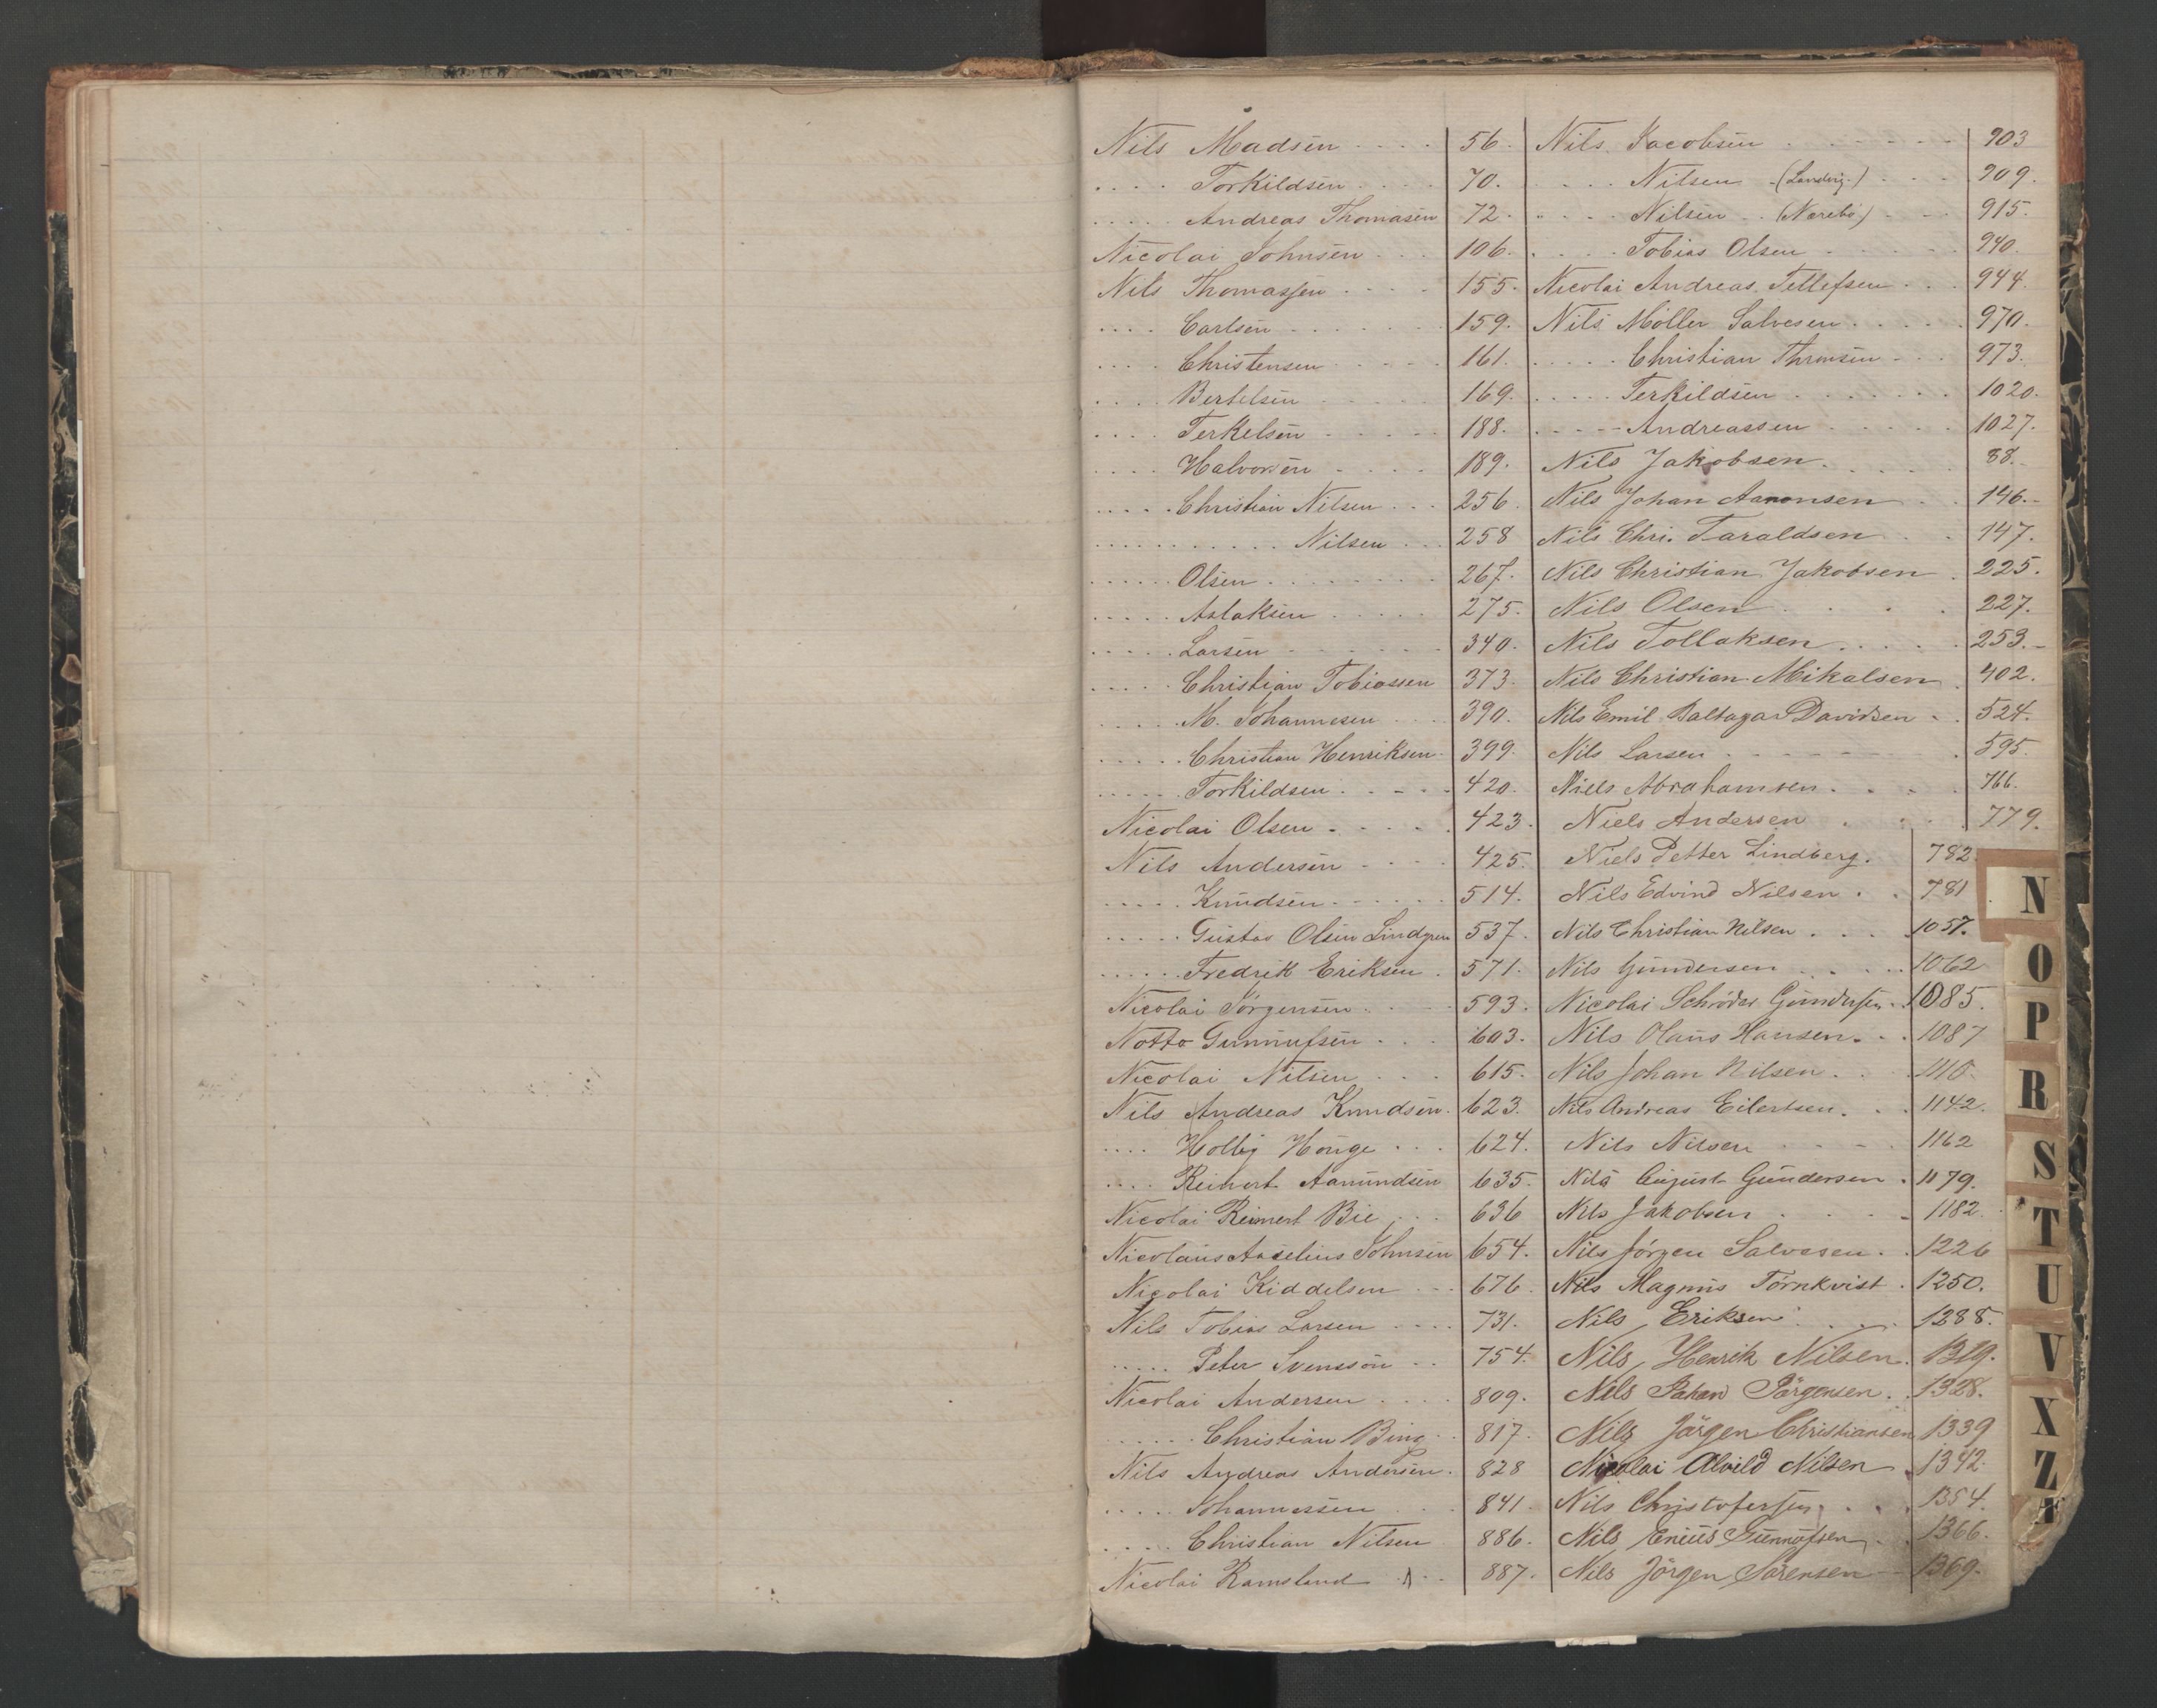 Nils Madsen .... 56.
.... Torkildsen .... 70.
.... Andreas Thomasen 72.
Nicolai Johnsen ... 106.
Nils Thomassen .... 155.
.... Carlsen ...... 159.
.... Christensen .... 161.
.... Bertelsen .... 169.
.... Terkelsen .... 188.
.... Halvorsen .... 189.
.... Christian Nilsen ... 256.
.......... Nilsen ... 258
...... Olsen ....... 267.
..... Aslaksen ..... 275.
..... Larsen ...... 340.
..... Christian Tobiassen 373.
..... M. Johannesen ... 390.
..... Christian Henriksen 399.
..... Torkildsen ..... 420.
Nicolai Olsen ..... 423.
Nils Andersen .... 425.
..... Knudsen ..... 514.
..... Gustav Olsen Lindgren 537.
...... Fredrik Eriksen . 571.
Nicolai Jörgensen .... 593.
Notto Gunnufsen ... 603.
Nicolai Nilsen ... 615.
Nils Andreas Knudsen. 623.
.... Holby Houge ... 624.
.... Reinert Aamundsen 635.
Nicolai Reinert Bie ... 636
Nicolaus Johnsen 654.
Nicolai Kiddelsen ... 676.
Nils Tobias Larsen .... 731.
..... Peter Svensson .. 754.
Nicolai Andersen .... 809.
...... Christian Bing .. 817.
Nils Andreas Andersen. 828
..... Johannessen ... 841.
.... Christian Nilsen 886.
Nicolai Ramsland ... 887.
Nils Jacobsen ...... 903
.... Nilsen (Landvig.) ... 909.
.... Nilsen .. (Narebö) ... 915.
.... Tobias Olsen ..... 940.
Nicolai Andreas Tellefsen ... 944.
Nils Möller Salvesen ..... 970.
.... Christian Thronsen ... 973.
..... Terkildsen ....... 1020.
..... Andreassen ..... 1027.
Nils Jakobsen. .... 88.
Nils Johan Aanonsen .. 146.
Nils Chri. Taraldsen .. 147.
Nils Christian Jakobsen . 225.
Nils Olsen .... 227.
Nils Tollaksen ..... 253.
Nils Christian Mikalsen . 402.
Nils Emil Baltazar Davidsen .. 524.
Nils Larsen ...... 595.
Niels Abrahamsen .... 766.
Niels Andersen ... 779.
Niels Petter Lindberg. 782
Nils Edvind Nilsen .. 781
Nils Christian Nilsen .... 1057.
Nils Gundersen ..... 1062
Nicolai Schröder Gundersen .. 1085.
Nils Olaus Hansen ... 1087
Nils Johan Nilsen. ... 1110.
Nils Andreas Eilertsen. .. 1142.
Nils Nilsen .... 1162
Nils August Gundersen . 1179.
Nils Jakobsen .... 1182.
Nils Jörgen Salvesen .. 1226
Nils Magnus Törnkvist . 1250.
Nils Eriksen .... 1288.
Nils Henrik Nilsen. 1319.
Nils Johan Jörgensen . 1328.
Nils Jörgen Christiansen 1339
Nicolai Alvild Nilsen . 1342.
Nils Christofersen ... 1354.
Nils Gunnufsen .. 1366.
Nils Jörgen Sörensen .. 1369.
N
O
P
R
S
T
U
V
X
Z